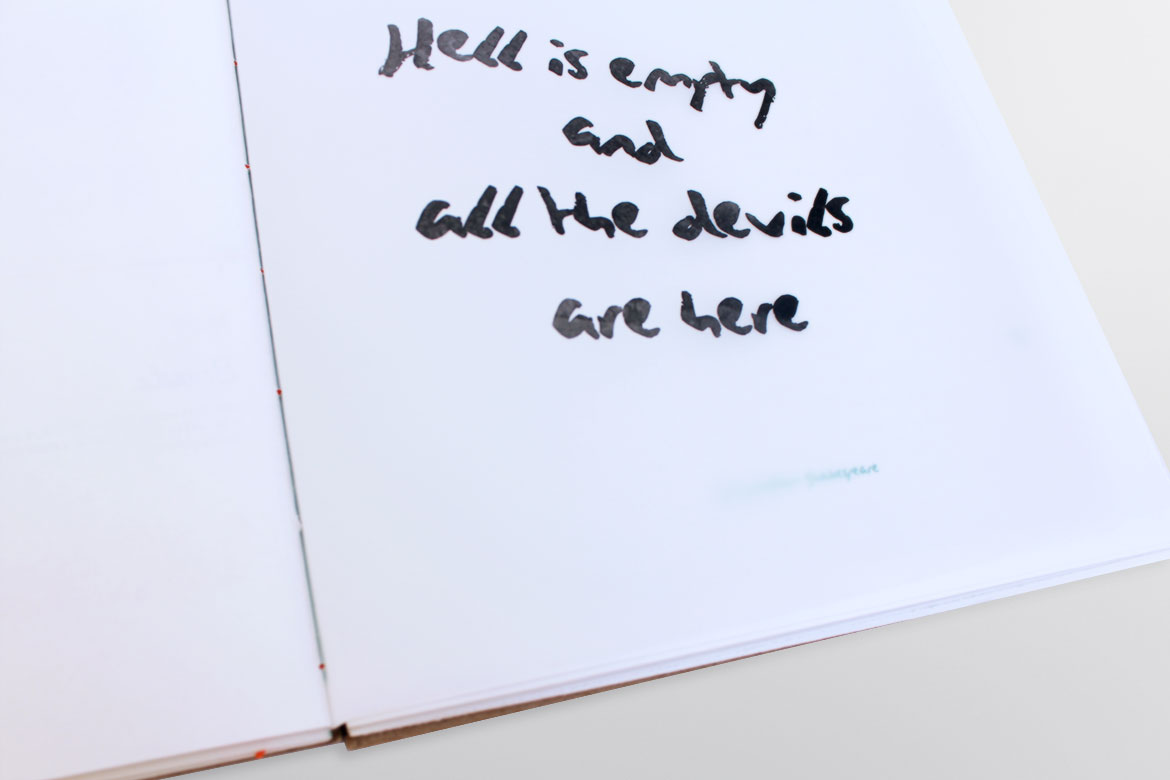 Hell is empty
and
all the devils
are here
Shakespeare